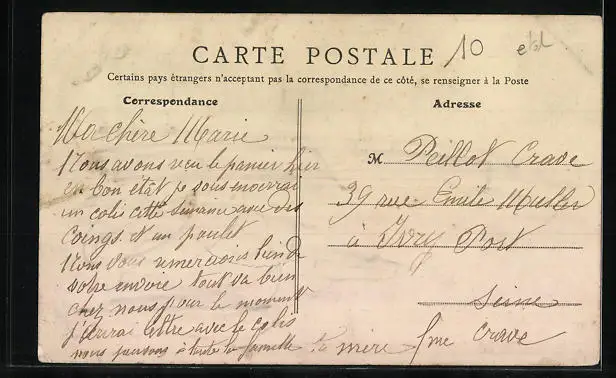 CARTE POSTALE
10
Certains pays étrangers n'acceptant pas la correspondance de ce côté, se renseigner à la Poste
Correspondance
Ma chère Marie
Nous avons reçu le panier hier
en bon état je vous enverrai
un colis cette semaine avec des
Coings et un poulet
Nous vous remercions bien de
votre envoie tout va bien
chez nous pour le moment
j'écrirai lettre avec le colis
nous pensons à toute la famille ta mère fme Crave
Adresse
M Peillot Crave
39 rue Emile Muller
à Ivry Port
Seine